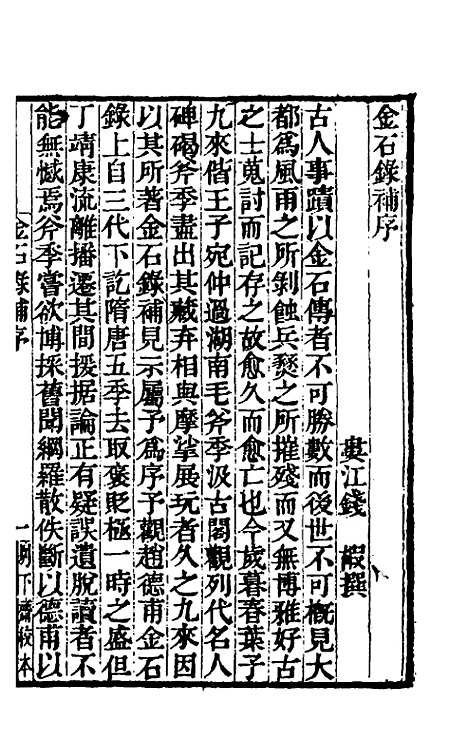 金石錄補序
婁江錢 嘏撰
古人事蹟以金石傳者不可勝數而後世不可槪見大
都爲風雨之所剝蝕兵燹之所摧殘而又無博雅好古
之士蒐討而記存之故愈久而愈亡也今歲暮春葉子
九來偕王子宛仲過湖南毛斧季汲古閣觀列代名人
碑碣斧季盡出其藏弆相與摩挲展玩者久之九來因
以其所著金石錄補見示屬予爲序予觀趙德甫金石
錄上自三代下訖隋唐五季去取褒貶極一時之盛但
丁靖康流離播遷其間援据論正有疑誤遺脫讀者不
能無憾焉斧季嘗欲博採舊聞網羅散佚斷以德甫以
金石錄補序 一